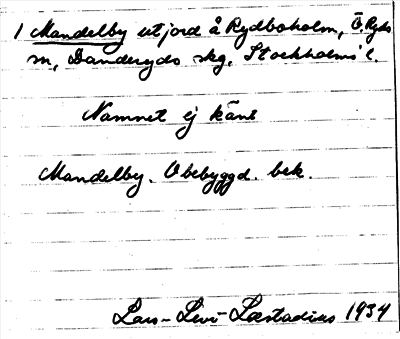 1 Mandelby utjord å Rydboholm, Ö. Ryds
sn, Danderyds skg, Stockholms l.
Namnet ej känt
Mandelby. Obebyggd. bek.
Lars-Levi Læstadius 1934